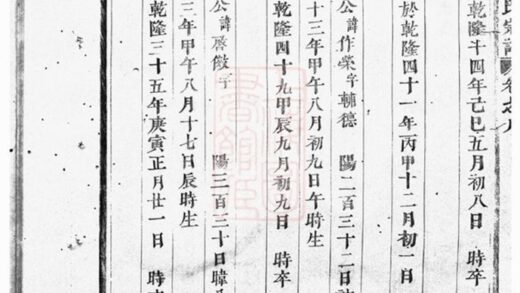 氏宗譜 卷之八
乾隆十四年己巳五月初八日 時卒
於乾隆四十一年丙甲十二月初一日 時
公諱作榮字輔德 陽二百三十二日
十三年甲午八月初九日午時生
乾隆四十九甲辰九月初九日 時卒
公諱啟徽字 陽三百三十日暐
三年甲午八月十七日辰時生
乾隆三十五年庚寅正月廿一日 時卒